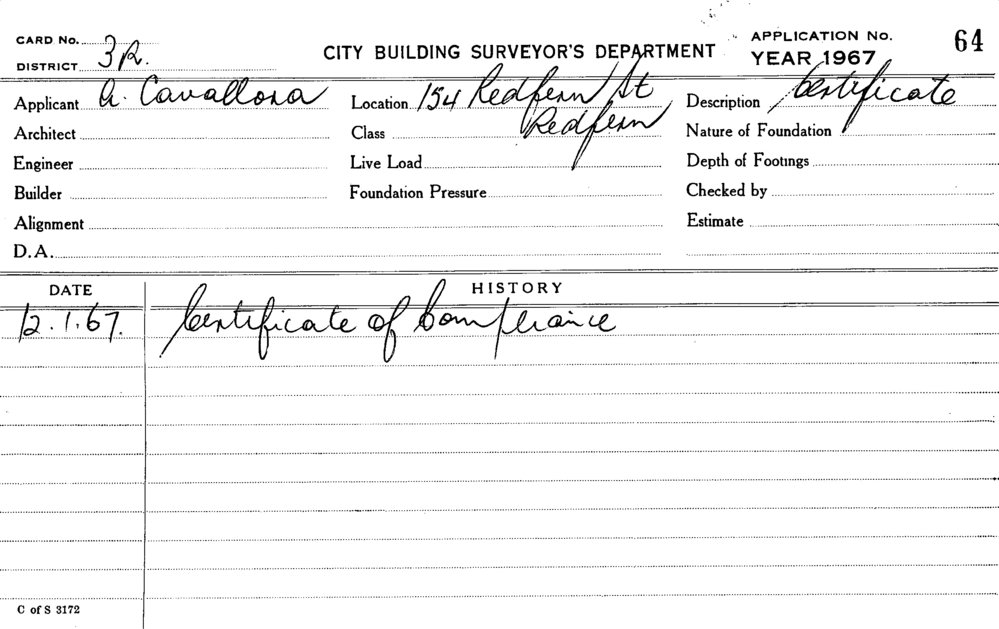 CARD No. 3R.
DISTRICT
CITY BUILDING SURVEYOR'S DEPARTMENT
APPLICATION No. 64
YEAR 1967
Applicant A. Cavallona Location 154 Redfern St Description Certificate
Architect Class Redfern Nature of Foundation
Engineer Live Load Depth of Footings
Builder Foundation Pressure Checked by
Alignment Estimate
D.A.
DATE HISTORY
12.1.67. Certificate of Compliance
C of S 3172